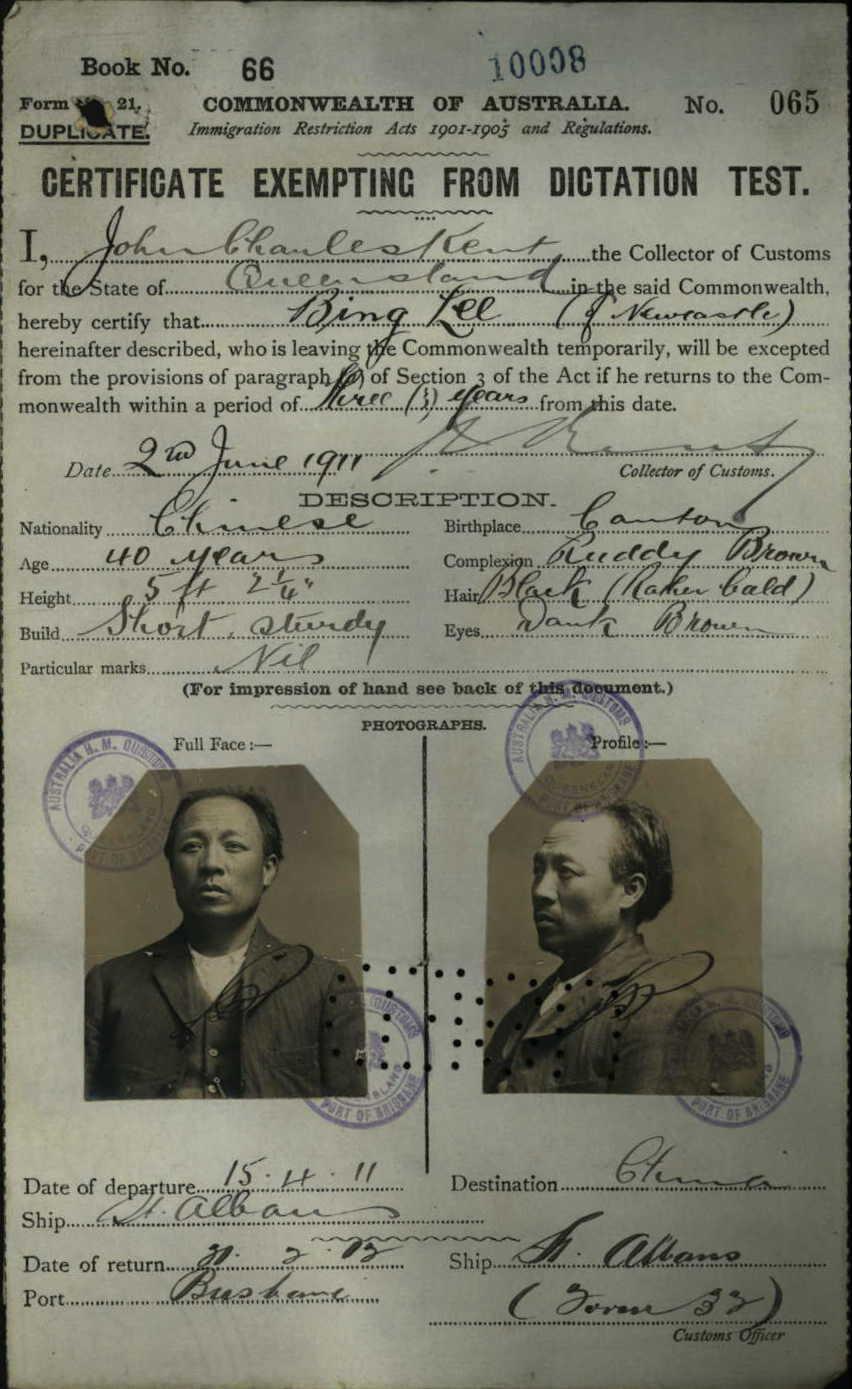 Book No. 66
10008
Form 21.
COMMONWEALTH OF AUSTRALIA.
No. 065
DUPLICATE.
Immigration Restriction Acts 1901-1905 and Regulations.
CERTIFICATE EXEMPTING FROM DICTATION TEST.
I, John Charles Kent the Collector of Customs
for the State of Queensland in the said Commonwealth,
hereby certify that Bing Lee (of Newcastle)
hereinafter described, who is leaving the Commonwealth temporarily, will be excepted
from the provisions of paragraph (a) of Section 3 of the Act if he returns to the Com-
monwealth within a period of three (3) years from this date.
Date 2nd June 1911
Collector of Customs.
DESCRIPTION.
Nationality Chinese
Birthplace Canton
Age 40 years
Complexion Ruddy Brown
Height 5 ft 2¼"
Hair Black (Rather bald)
Build Short, sturdy
Eyes Dark Brown
Particular marks Nil
(For impression of hand see back of this document.)
PHOTOGRAPHS.
Full Face :—
Profile :—
AUSTRALIA H. M. CUSTOMS
QUEENSLAND
PORT OF BRISBANE
AUSTRALIA H. M. CUSTOMS
QUEENSLAND
PORT OF BRISBANE
CUSTOMS
PORT OF BRISBANE
PORT OF BRISBANE
Date of departure 15. 4. 11
Destination China
Ship St. Albans
Date of return 2
Ship St. Albans
Port Brisbane
(Form 32)
Customs Officer